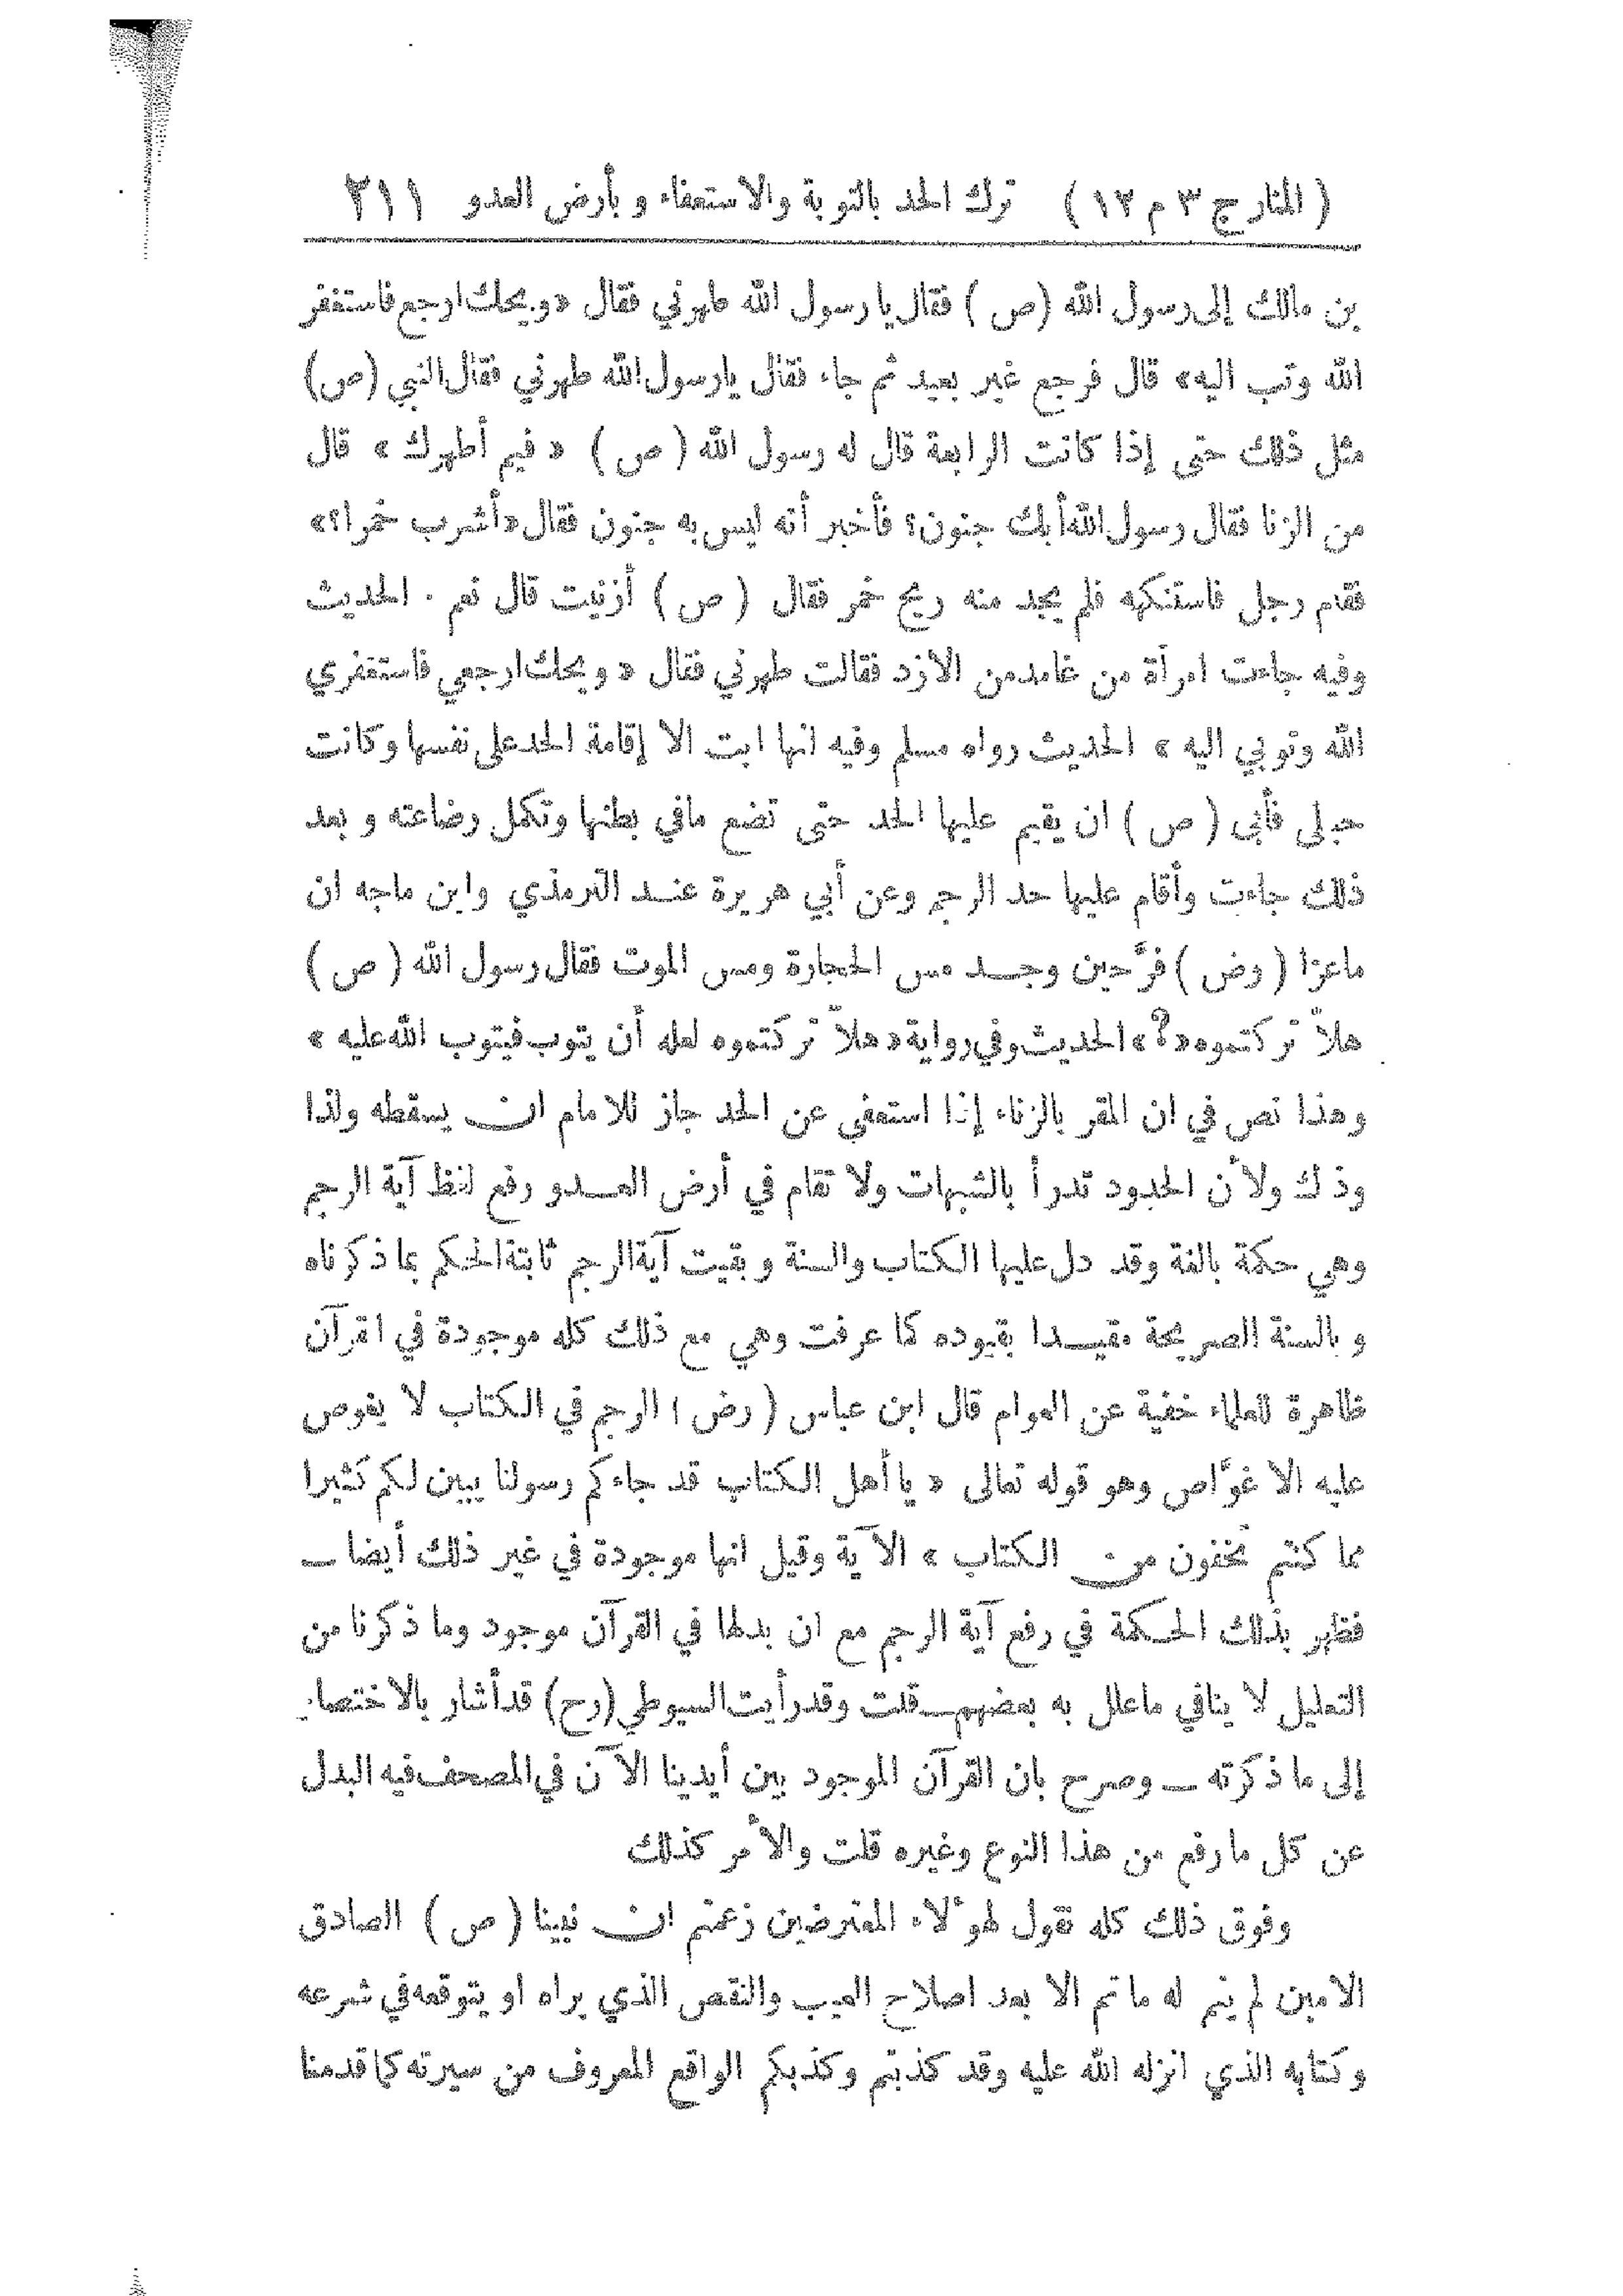 ( المنار ج ٣ م ١٢ ) ترك الحد بالتوبة والاستعفاء و بأرض العدو ٢١١
بن مالك إلى رسول الله (ص ) فقال يا رسول الله طهرني فقال «ويحك ارجع فاستغفر
الله وتب اليه» قال فرجع غير بعيد ثم جاء فقال يارسول الله طهرني فقال النبي (ص)
مثل ذلك حتى إذا كانت الرابعة قال له رسول الله ( ص ) « فيم أطهرك » قال
من الزنا فقال رسول الله أبك جنون؟ فأخبر أنه ليس به جنون فقال «أشرب خمرا؟»
فقام رجل فاستنكهه فلم يجد منه ريح خمر فقال ( ص ) أزنيت قال نعم . الحديث
وفيه جاءت امرأة من غامد من الازد فقالت طهرني فقال « ويحك ارجعي فاستغفري
الله وتوبي اليه » الحديث رواه مسلم وفيه انها ابت الا إقامة الحد على نفسها وكانت
حبلى فأبى ( ص ) ان يقيم عليها الحد حتى تضع مافي بطنها وتكمل رضاعته و بعد
ذلك جاءت وأقام عليها حد الرجم وعن أبي هريرة عند الترمذي وابن ماجه ان
ماعزا ( رض ) فرَّ حين وجد مس الحجارة ومس الموت فقال رسول الله ( ص )
هلاّ تركتموه «؟» الحديث وفي رواية « هلاّ تركتموه لعله أن يتوب فيتوب الله عليه »
وهذا نص في ان المقر بالزناء إذا استعفى عن الحد جاز للامام ان يسقطه ولذا
وذ ك ولأن الحدود تدرأ بالشبهات ولا تقام في أرض العدو رفع لفظ آية الرجم
وهي حكمة بالغة وقد دل عليها الكتاب والسنة و بقيت آية الرجم ثابتة الحكم بما ذكرناه
و بالسنة الصريحة مقيدا بقيوده كما عرفت وهي مع ذلك كله موجودة في القرآن
ظاهرة للعلماء خفية عن العوام قال ابن عباس ( رض ) الرجم في الكتاب لا يغوص
عليه الا غوَّاص وهو قوله تعالى « يا أهل الكتاب قد جاءكم رسولنا يبين لكم كثيرا
مما كنتم تخفون من الكتاب » الآية وقيل انها موجودة في غير ذلك أيضا ــ
فظهر بذلك الحكمة في رفع آية الرجم مع ان بدلها في القرآن موجود وما ذكرنا من
التعليل لا ينافي ماعلل به بعضهم ــ قلت وقد رأيت السيوطي (رح) قد أشار بالاختصار
إلى ما ذكرته ــ وصرح بان القرآن الموجود بين أيدينا الآن في المصحف فيه البدل
عن كل ما رفع من هذا النوع وغيره قلت والأمر كذلك
وفوق ذلك كله نقول لهؤلاء المعترضين زعمتم ان نبينا ( ص ) الصادق
الامين لم يتم له ما تم الا بعد اصلاح العيب والنقص الذي يراه او يتوقعه في شرعه
وكتابه الذي انزله الله عليه وقد كذبتم وكذبكم الواقع المعروف من سيرته كما قدمنا